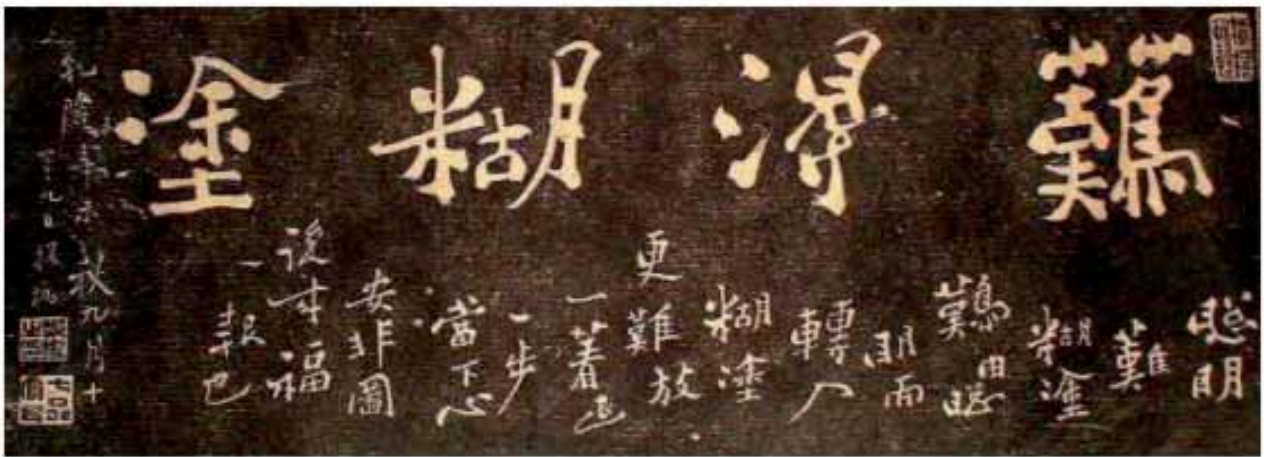 難得糊塗
聰明
難
糊塗
難由聰
明而
轉入
糊塗
更難放
一著退
一步
當下心
安非圖
後來福
報也
乾隆辛未秋九月十
九日板橋